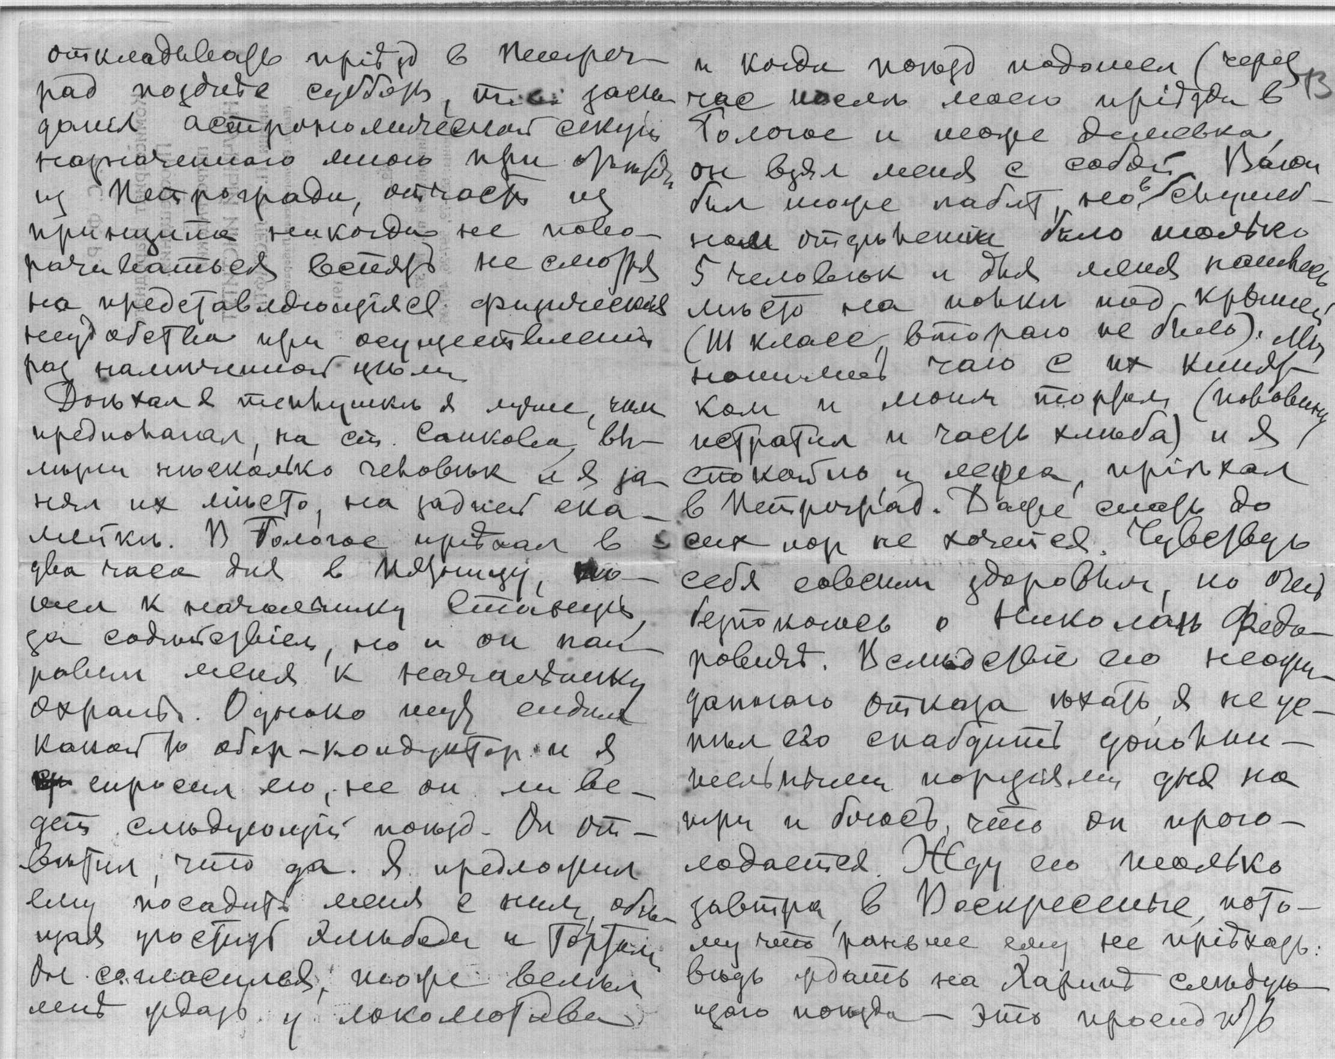 откладывать пріѣзд в Петрог-
рад позднѣе субботы, засѣ-
данія астрономической секціи
назначеннаго мною при отъѣздѣ
из Петрограда, отчасти из
принципа никогда не пово-
рачиваться вспять не смотря
на представляющіяся физическія
неудобства при осуществленіи
раз намѣченной цѣли
Доѣхал я теплушкѣ я лучше, чѣм
предполагал, на ст. Санково вы-
лѣзли нѣсколько человѣк и я за-
нял их мѣсто, на задней ска-
мейкѣ. В Бологое пріѣхал в
два часа дня в пятницу, по-
шел к начальнику станціи,
за содѣйствіем, но и он нап-
равил меня к начальнику
охраны. Однако тут сидѣл
какой то обер-кондуктор и я
спросил его, не он ли ве-
дет слѣдующій поѣзд. Он от-
вѣтил, что да. Я предложил
ему посадить меня с ним, обѣ-
щая угостить хлѣбом и тортом.
Он согласился, тоже велѣл
мнѣ ждать у локомотива
и когда поѣзд подошел (через 13
час послѣ моего пріѣзда в
Бологое и тоже дешевка,
он взял меня с собой. Вагон
был тоже набит, но в служеб-
ном отдѣленіи было только
5 человѣк и для меня нашлось
мѣсто на полкѣ под крышей
(III класс, второго не было). Мы
напились чаю с их кипят-
ком и моим тортом (половину
истратил и часть хлѣба) и я
спокойно, лежа, пріѣхал
в Петроград. Даже спать до
сих пор не хочется. Чувствую
себя совсѣм здоровым, но очень
безпокоюсь о Николаѣ Федо-
ровичѣ. Вслѣдствіе его неожи-
даннаго отказа ѣхать, я не ус-
пѣл его снабдить дополни-
тельными порціями дня на
три и боюсь, что он прого-
лодается. Жду его только
завтра, в Воскресенье, пото-
му что раньше ему не пріѣхать:
вѣдь ждать на слѣдую-
щаго поѣзда — это просидѣть